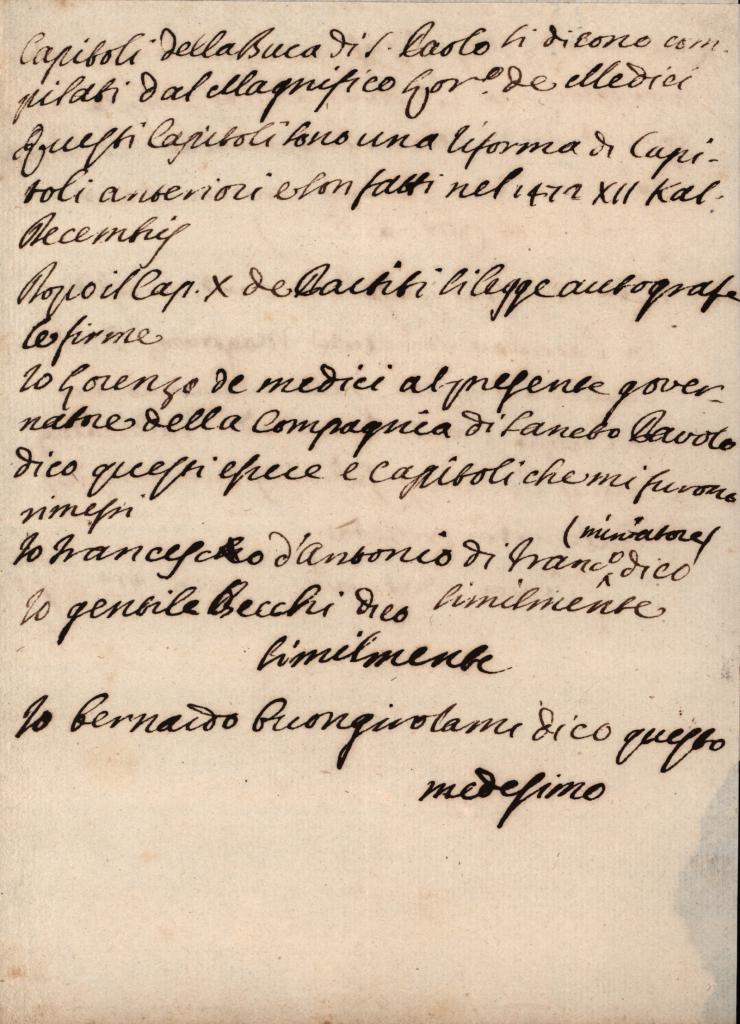 Capitoli della Buca di S. Paolo si dicono com-
pilati dal Magnifico Lor.º de Medici
Questi Capitoli sono una riforma di Capi-
toli anteriori e son fatti nel 1472 XII Kal.
Decembris
Dopo il Cap. X de Partiti si legge autografe
le firme
Io Lorenzo de medici al presente gover-
natore della Compagnia di Sancto Pavolo
dico questi essere e capitoli che mi furono
rimessi
(miniatore)
Io Francescho d'Antonio di Franc.º dico
similmente
Io gentile Becchi dico
similmente
Io bernardo buongirolami dico questo
medesimo